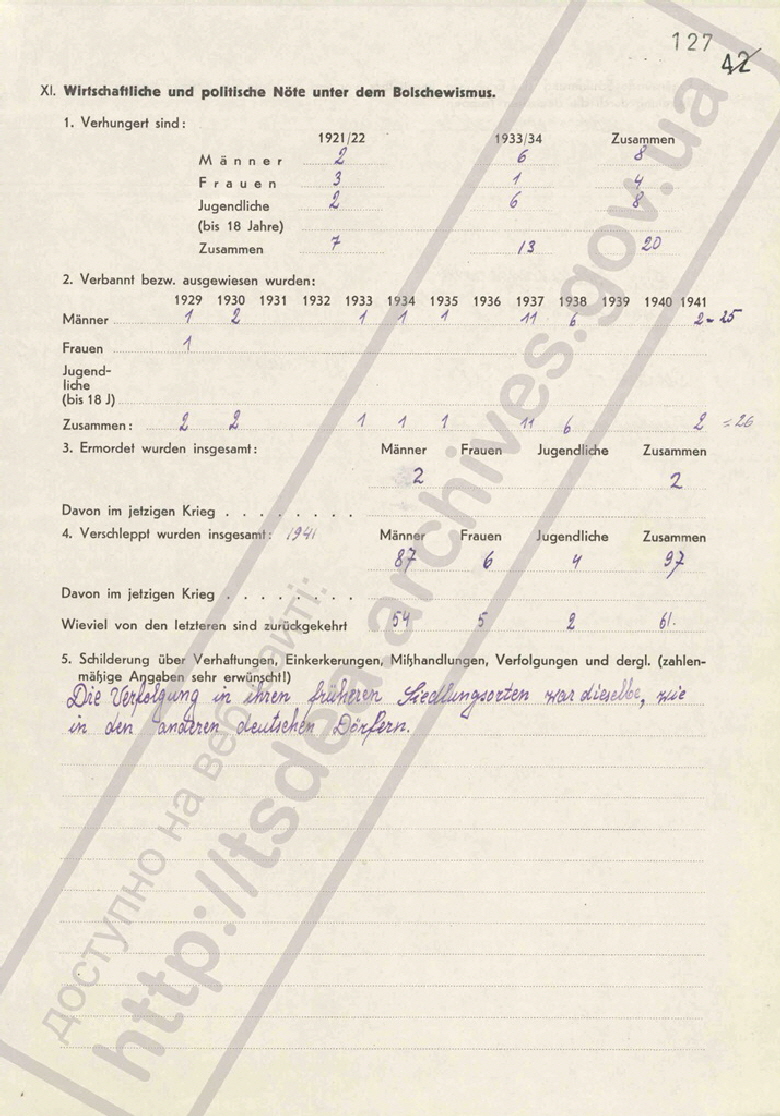 127
42
XI. Wirtschaftliche und politische Nöte unter dem Bolschewismus.
1. Verhungert sind:
1921/22 1933/34 Zusammen
Männer 2 6 8
Frauen 3 1 4
Jugendliche 2 6 8
(bis 18 Jahre)
Zusammen 7 13 20
2. Verbannt bezw. ausgewiesen wurden:
1929 1930 1931 1932 1933 1934 1935 1936 1937 1938 1939 1940 1941
Männer 1 2 1 1 1 11 6 2 = 25
Frauen 1
Jugend-
liche
(bis 18 J)
Zusammen: 2 2 1 1 1 11 6 2 = 26
3. Ermordet wurden insgesamt: Männer Frauen Jugendliche Zusammen
2 2
Davon im jetzigen Krieg . . . . . . . .
4. Verschleppt wurden insgesamt: 1941 Männer Frauen Jugendliche Zusammen
87 6 4 97
Davon im jetzigen Krieg . . . . . . . .
Wieviel von den letzteren sind zurückgekehrt 54 5 2 61.
5. Schilderung über Verhaftungen, Einkerkerungen, Mißhandlungen, Verfolgungen und dergl. (zahlen-
mäßige Angaben sehr erwünscht!)
Die Verfolgung in ihren früheren Siedlungsorten war dieselbe, wie
in den anderen deutschen Dörfern.
доступно на веб-сайті:
http://tsdea.archives.gov.ua